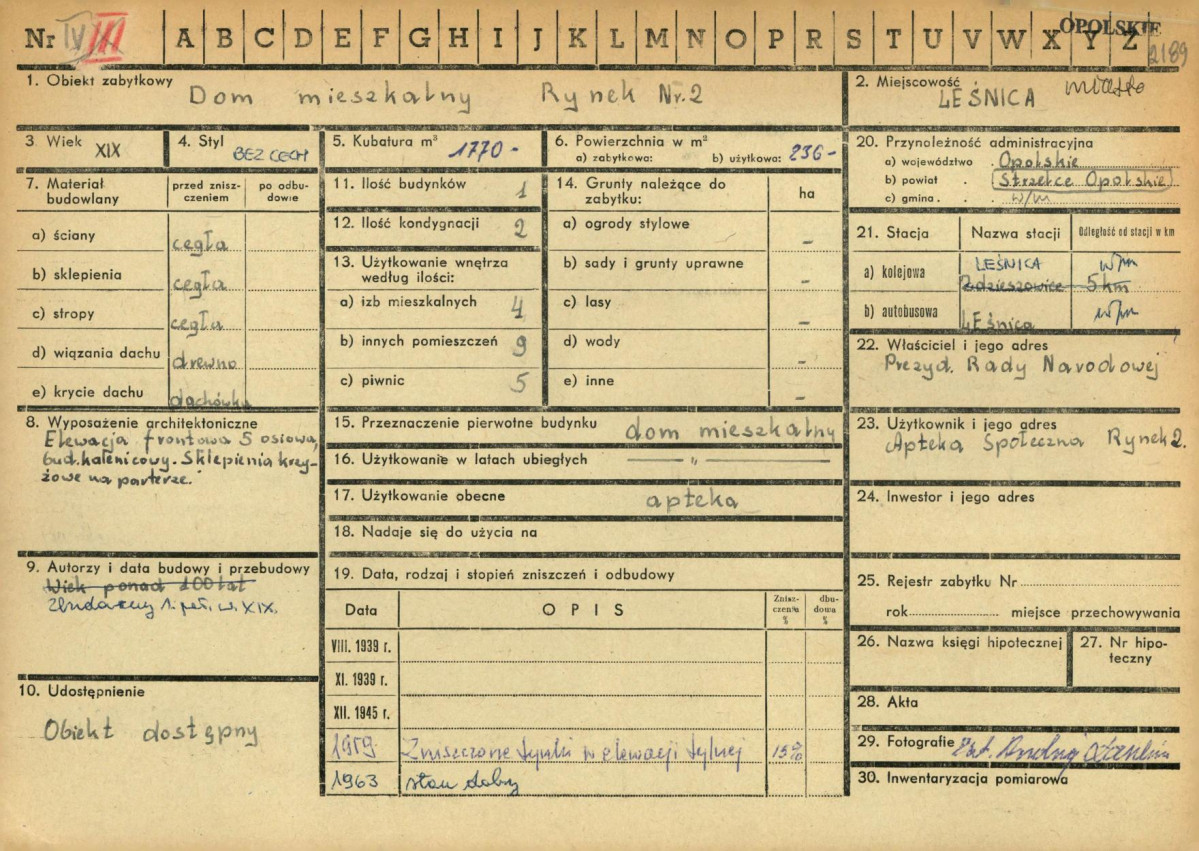 Nr IV III A B C D E F G H I J K L M N O P R S T U V W X Y Z
OPOLSKIE
2189
1. Obiekt zabytkowy
Dom mieszkalny Rynek Nr. 2
2. Miejscowość
LEŚNICA miasto
3 Wiek XIX
4. Styl BEZ CECH
5. Kubatura m³ 1770 -
6. Powierzchnia w m²
a) zabytkowa: b) użytkowa: 236 -
7. Materiał budowlany
przed zniszczeniem
po odbudowie
a) ściany cegła
b) sklepienia cegła
c) stropy cegła
d) wiązania dachu drewno
e) krycie dachu dachówka
8. Wyposażenie architektoniczne
Elewacja frontowa 5 osiowa,
bud. kalenicowy. Sklepienia krzy-
żowe na parterze.
9. Autorzy i data budowy i przebudowy
Wiek ponad 100 lat
Zbudowany 1. poł. w. XIX.
10. Udostępnienie
Obiekt dostępny
11. Ilość budynków 1
12. Ilość kondygnacji 2
13. Użytkowanie wnętrza
według ilości:
a) izb mieszkalnych 4
b) innych pomieszczeń 9
c) piwnic 5
14. Grunty należące do
zabytku:
ha
a) ogrody stylowe –
b) sady i grunty uprawne –
c) lasy –
d) wody –
e) inne –
15. Przeznaczenie pierwotne budynku dom mieszkalny
16. Użytkowanie w latach ubiegłych — „ —
17. Użytkowanie obecne apteka
18. Nadaje się do użycia na
19. Data, rodzaj i stopień zniszczeń i odbudowy
Data
OPIS
Znisz-
czenia
%
dbu-
dowa
%
VIII. 1939 r.
XI. 1939 r.
XII. 1945 r.
1959. Zniszczone tynki w elewacji tylnej 15%
1963 stan dobry
20. Przynoleżność administracyjna
a) województwo . Opolskie
b) powiat . . Strzelce Opolskie
c) gmina . . w/m
21. Stacja
Nazwa stacji
Odległość od stacji w km
a) kolejowa
LEŚNICA w/m
Zdzieszowice 5 km
b) autobusowa LEŚnica w/m
22. Właściciel i jego adres
Prezyd. Rady Narodowej
23. Użytkownik i jego adres
Apteka Społeczna Rynek 2.
24. Inwestor i jego adres
25. Rejestr zabytku Nr
rok miejsce przechowywania
26. Nazwa księgi hipotecznej
27. Nr hipo-
teczny
28. Akta
29. Fotografie
30. Inwentaryzacja pomiarowa